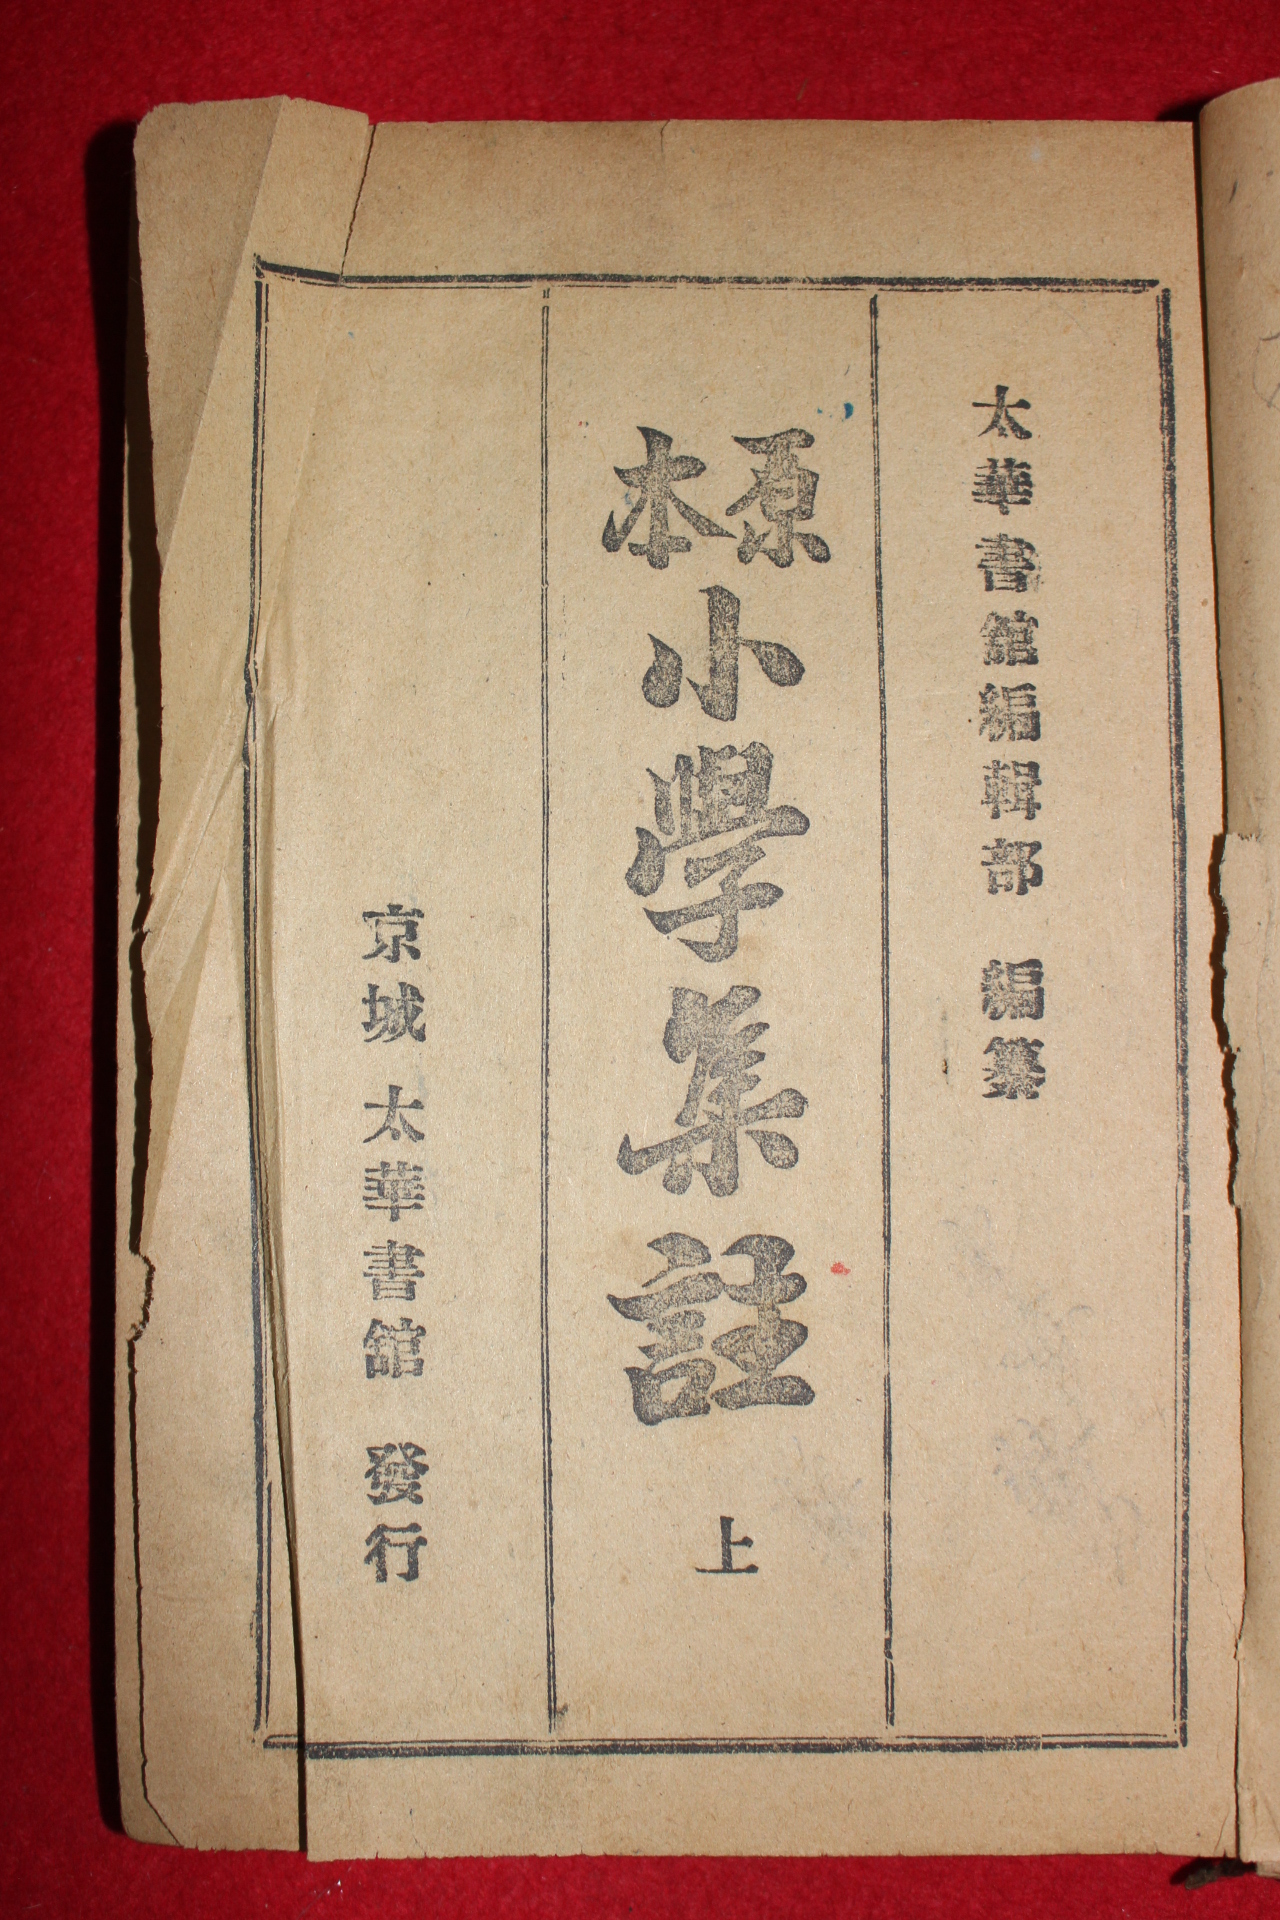 太華書館編輯部 編纂
原本
小學集註 上
京城 太華書館 發行